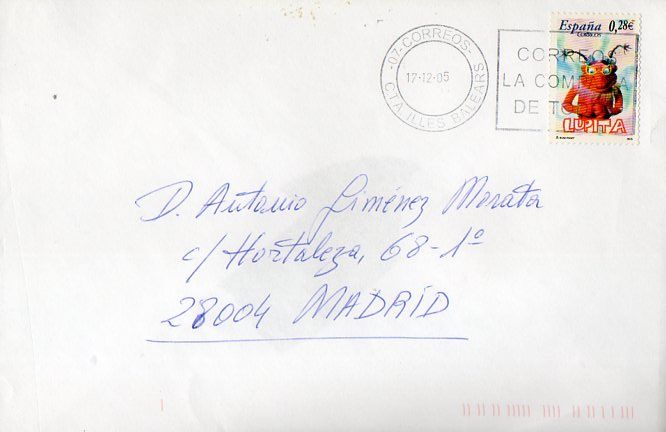 España 0,28€
CORREOS
-07-CORREOS-
17-12-05
CTA ILLES BALEARS
CORREOS
LA COM
DE TO
LUPITA
D. Antonio Giménez Morato
c/ Hortaleza, 68-1º
28004 MADRID